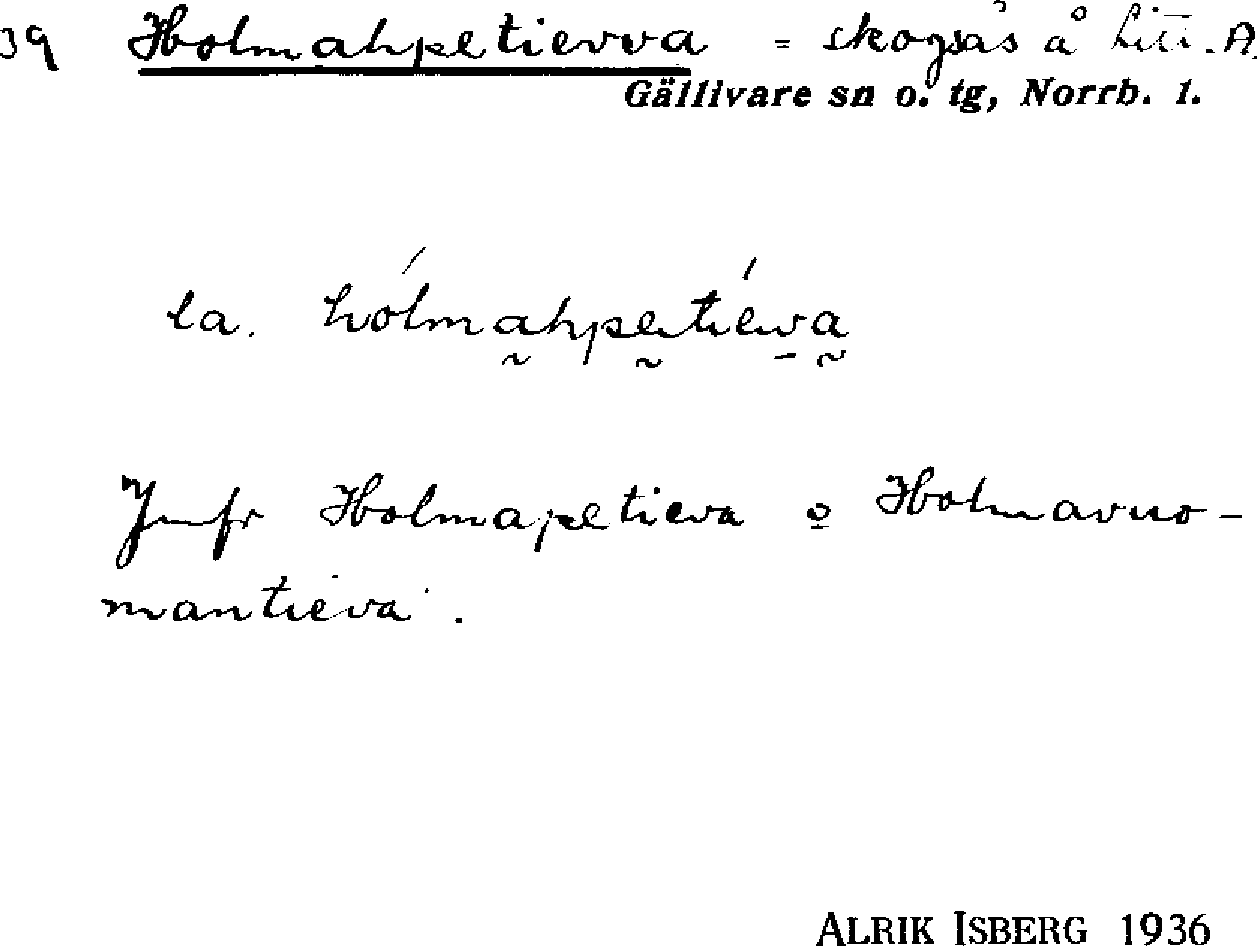 39 Holmahpetievva = skogsås å Litt. A.
Gällivare sn o. tg, Norrb. l.
la. hólmahpetiévva
Jmfr Holmapetieva o Holmavuo-
mantieva.
ALRIK ISBERG 1936